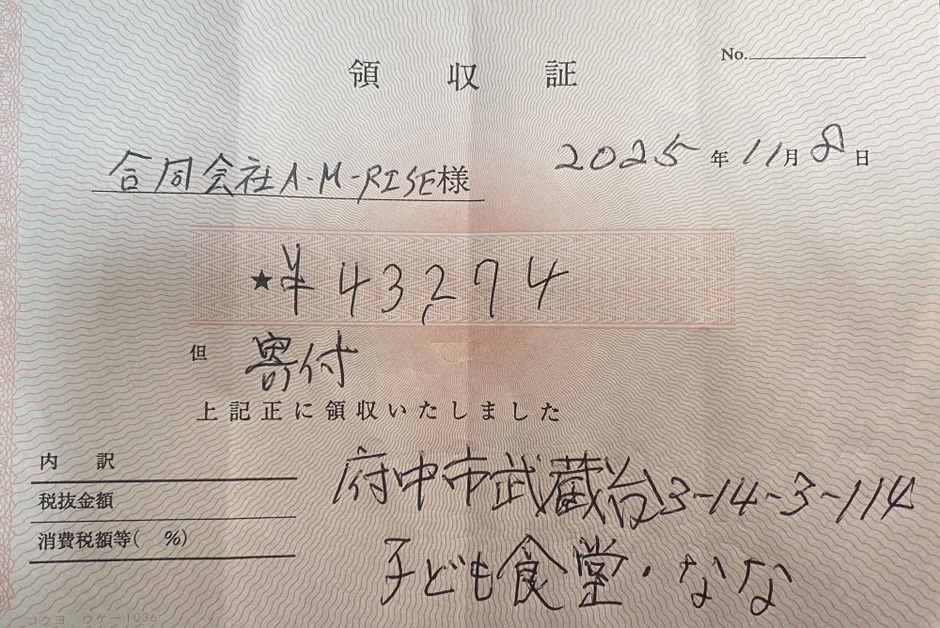 No.
領収証
2025年11月8日
合同会社A-M-RISE様
★¥43,274
但 寄付
上記正に領収いたしました
内訳
税抜金額
消費税額等( %)
府中市武蔵台3-14-3-114
子ども食堂・なな
コクヨ ウケ-1036